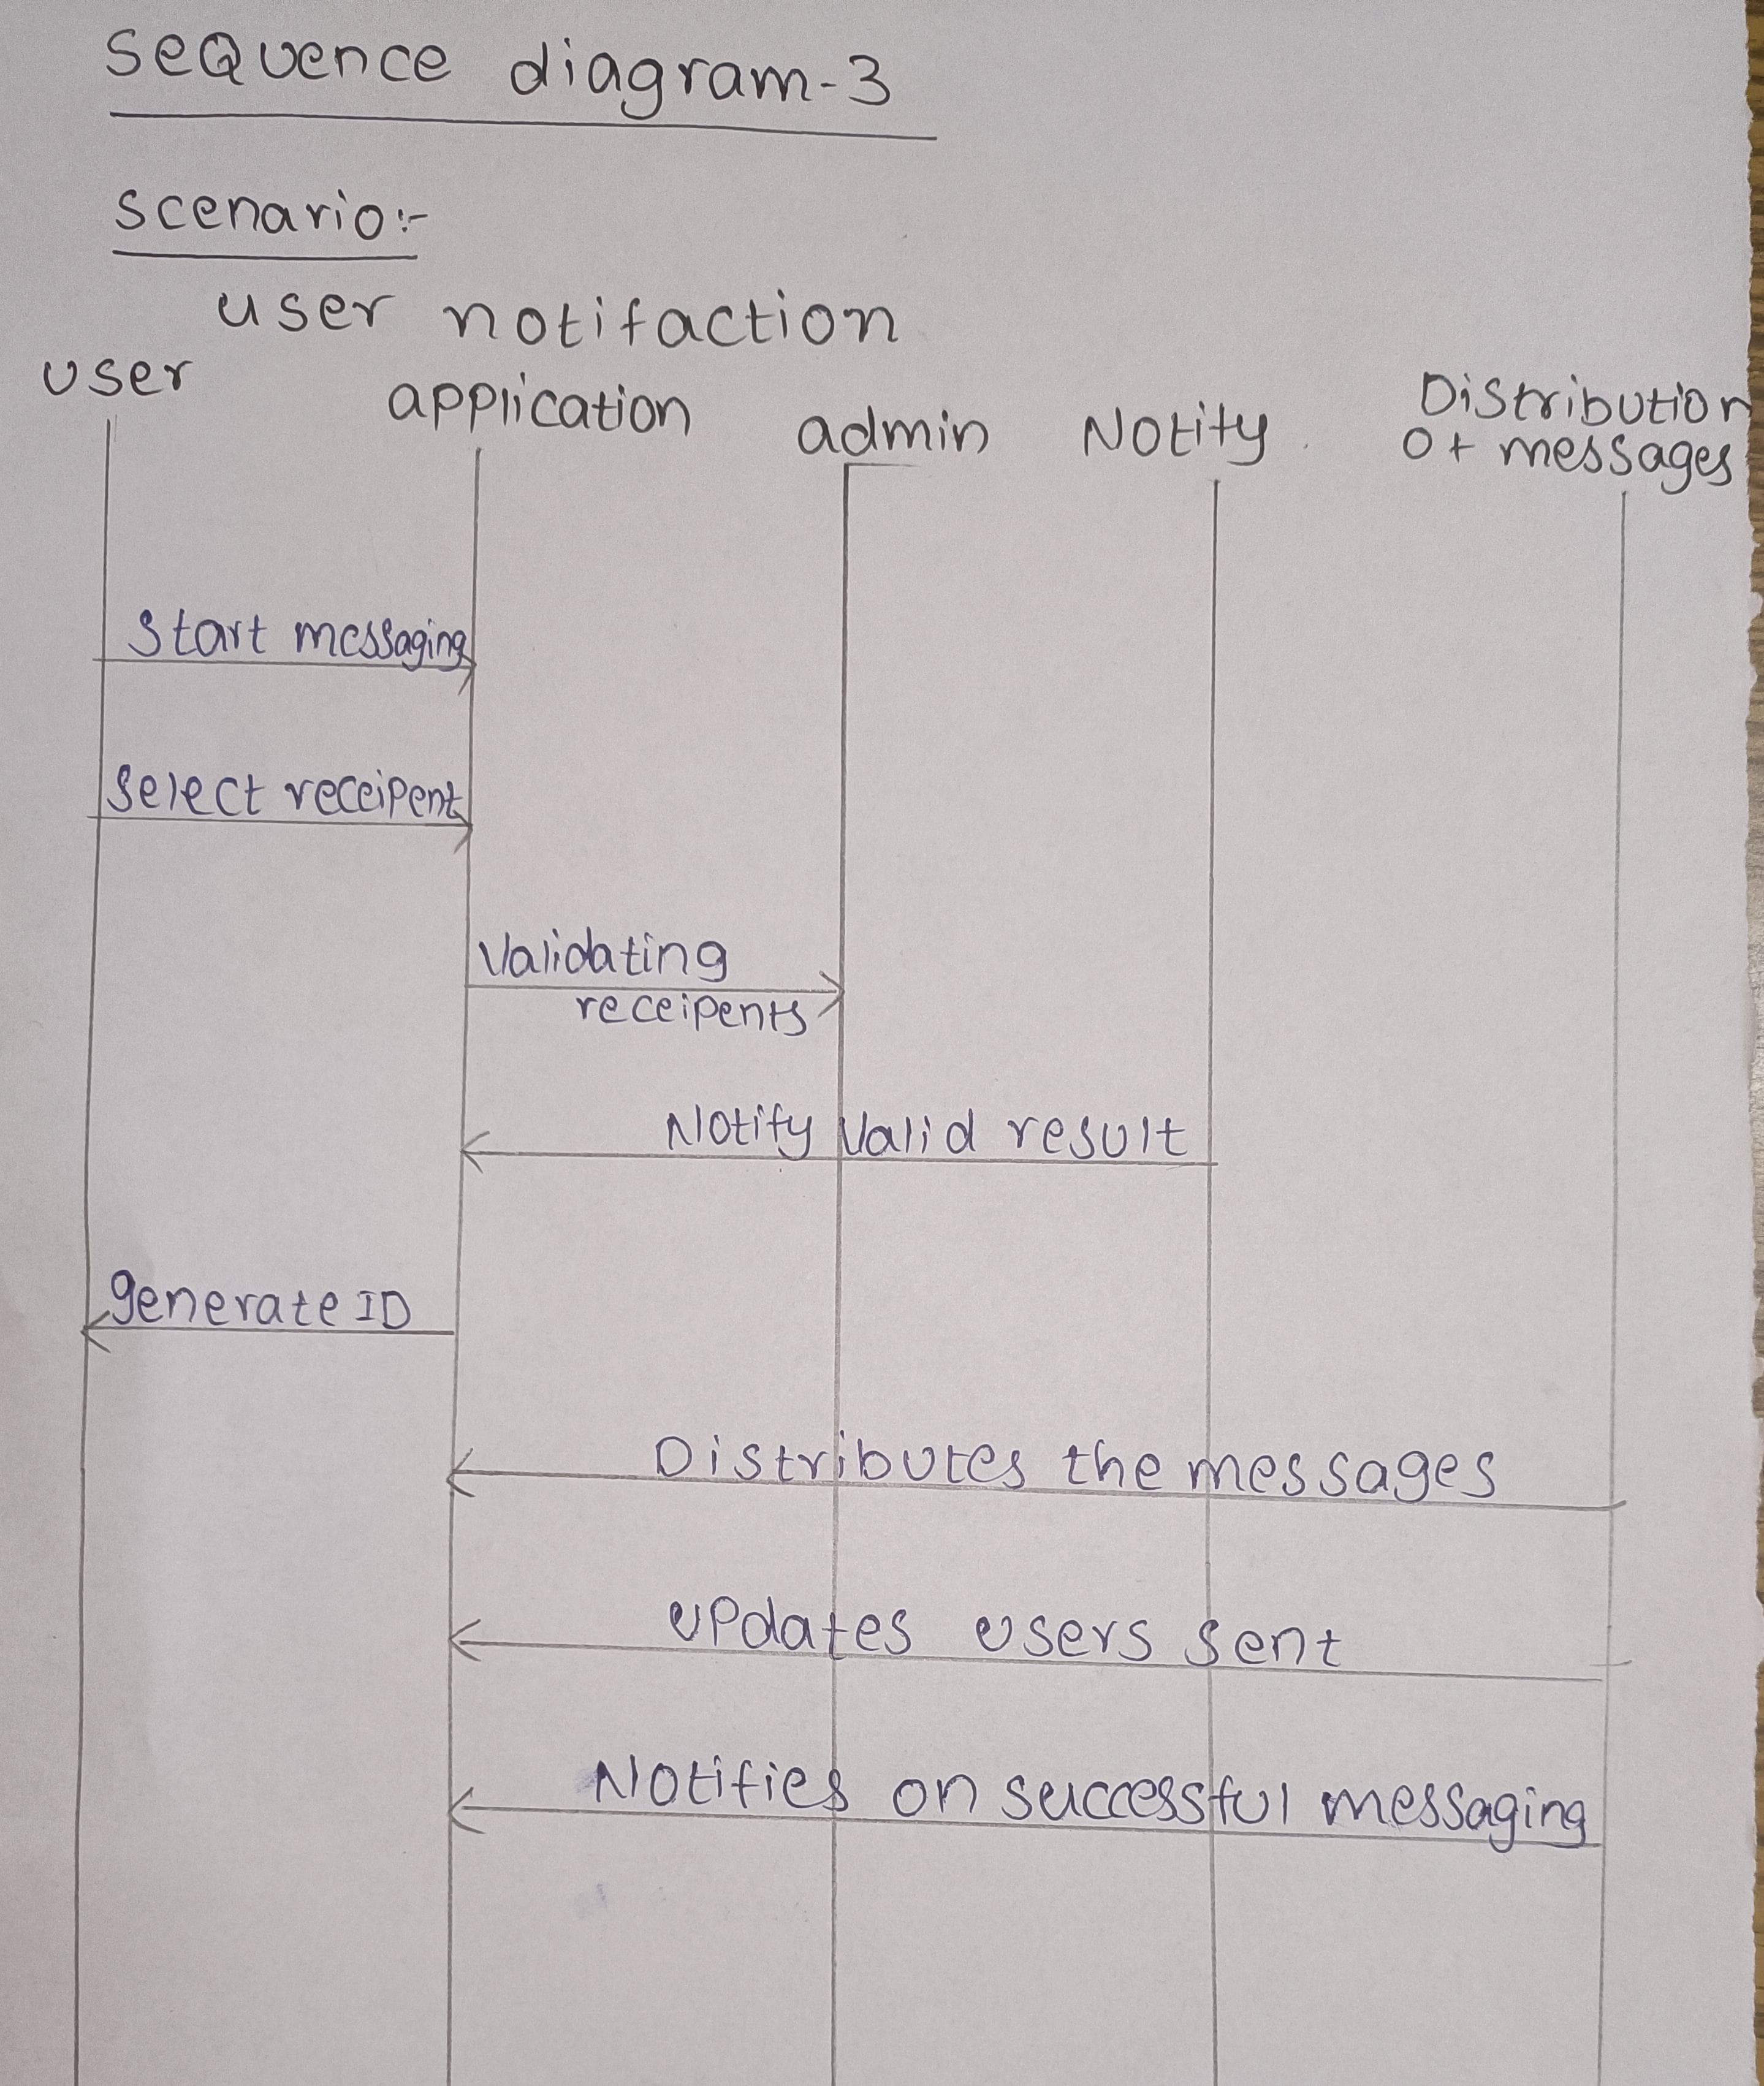 SeQuence diagram-3
Scenario:-
user notifaction
user
application
admin
Notify
Distribution
of messages
Start messaging
Select receipent
Validating
receipents
Notify Valid result
generate ID
Distributes the messages
updates users sent
Notifies on successful messaging